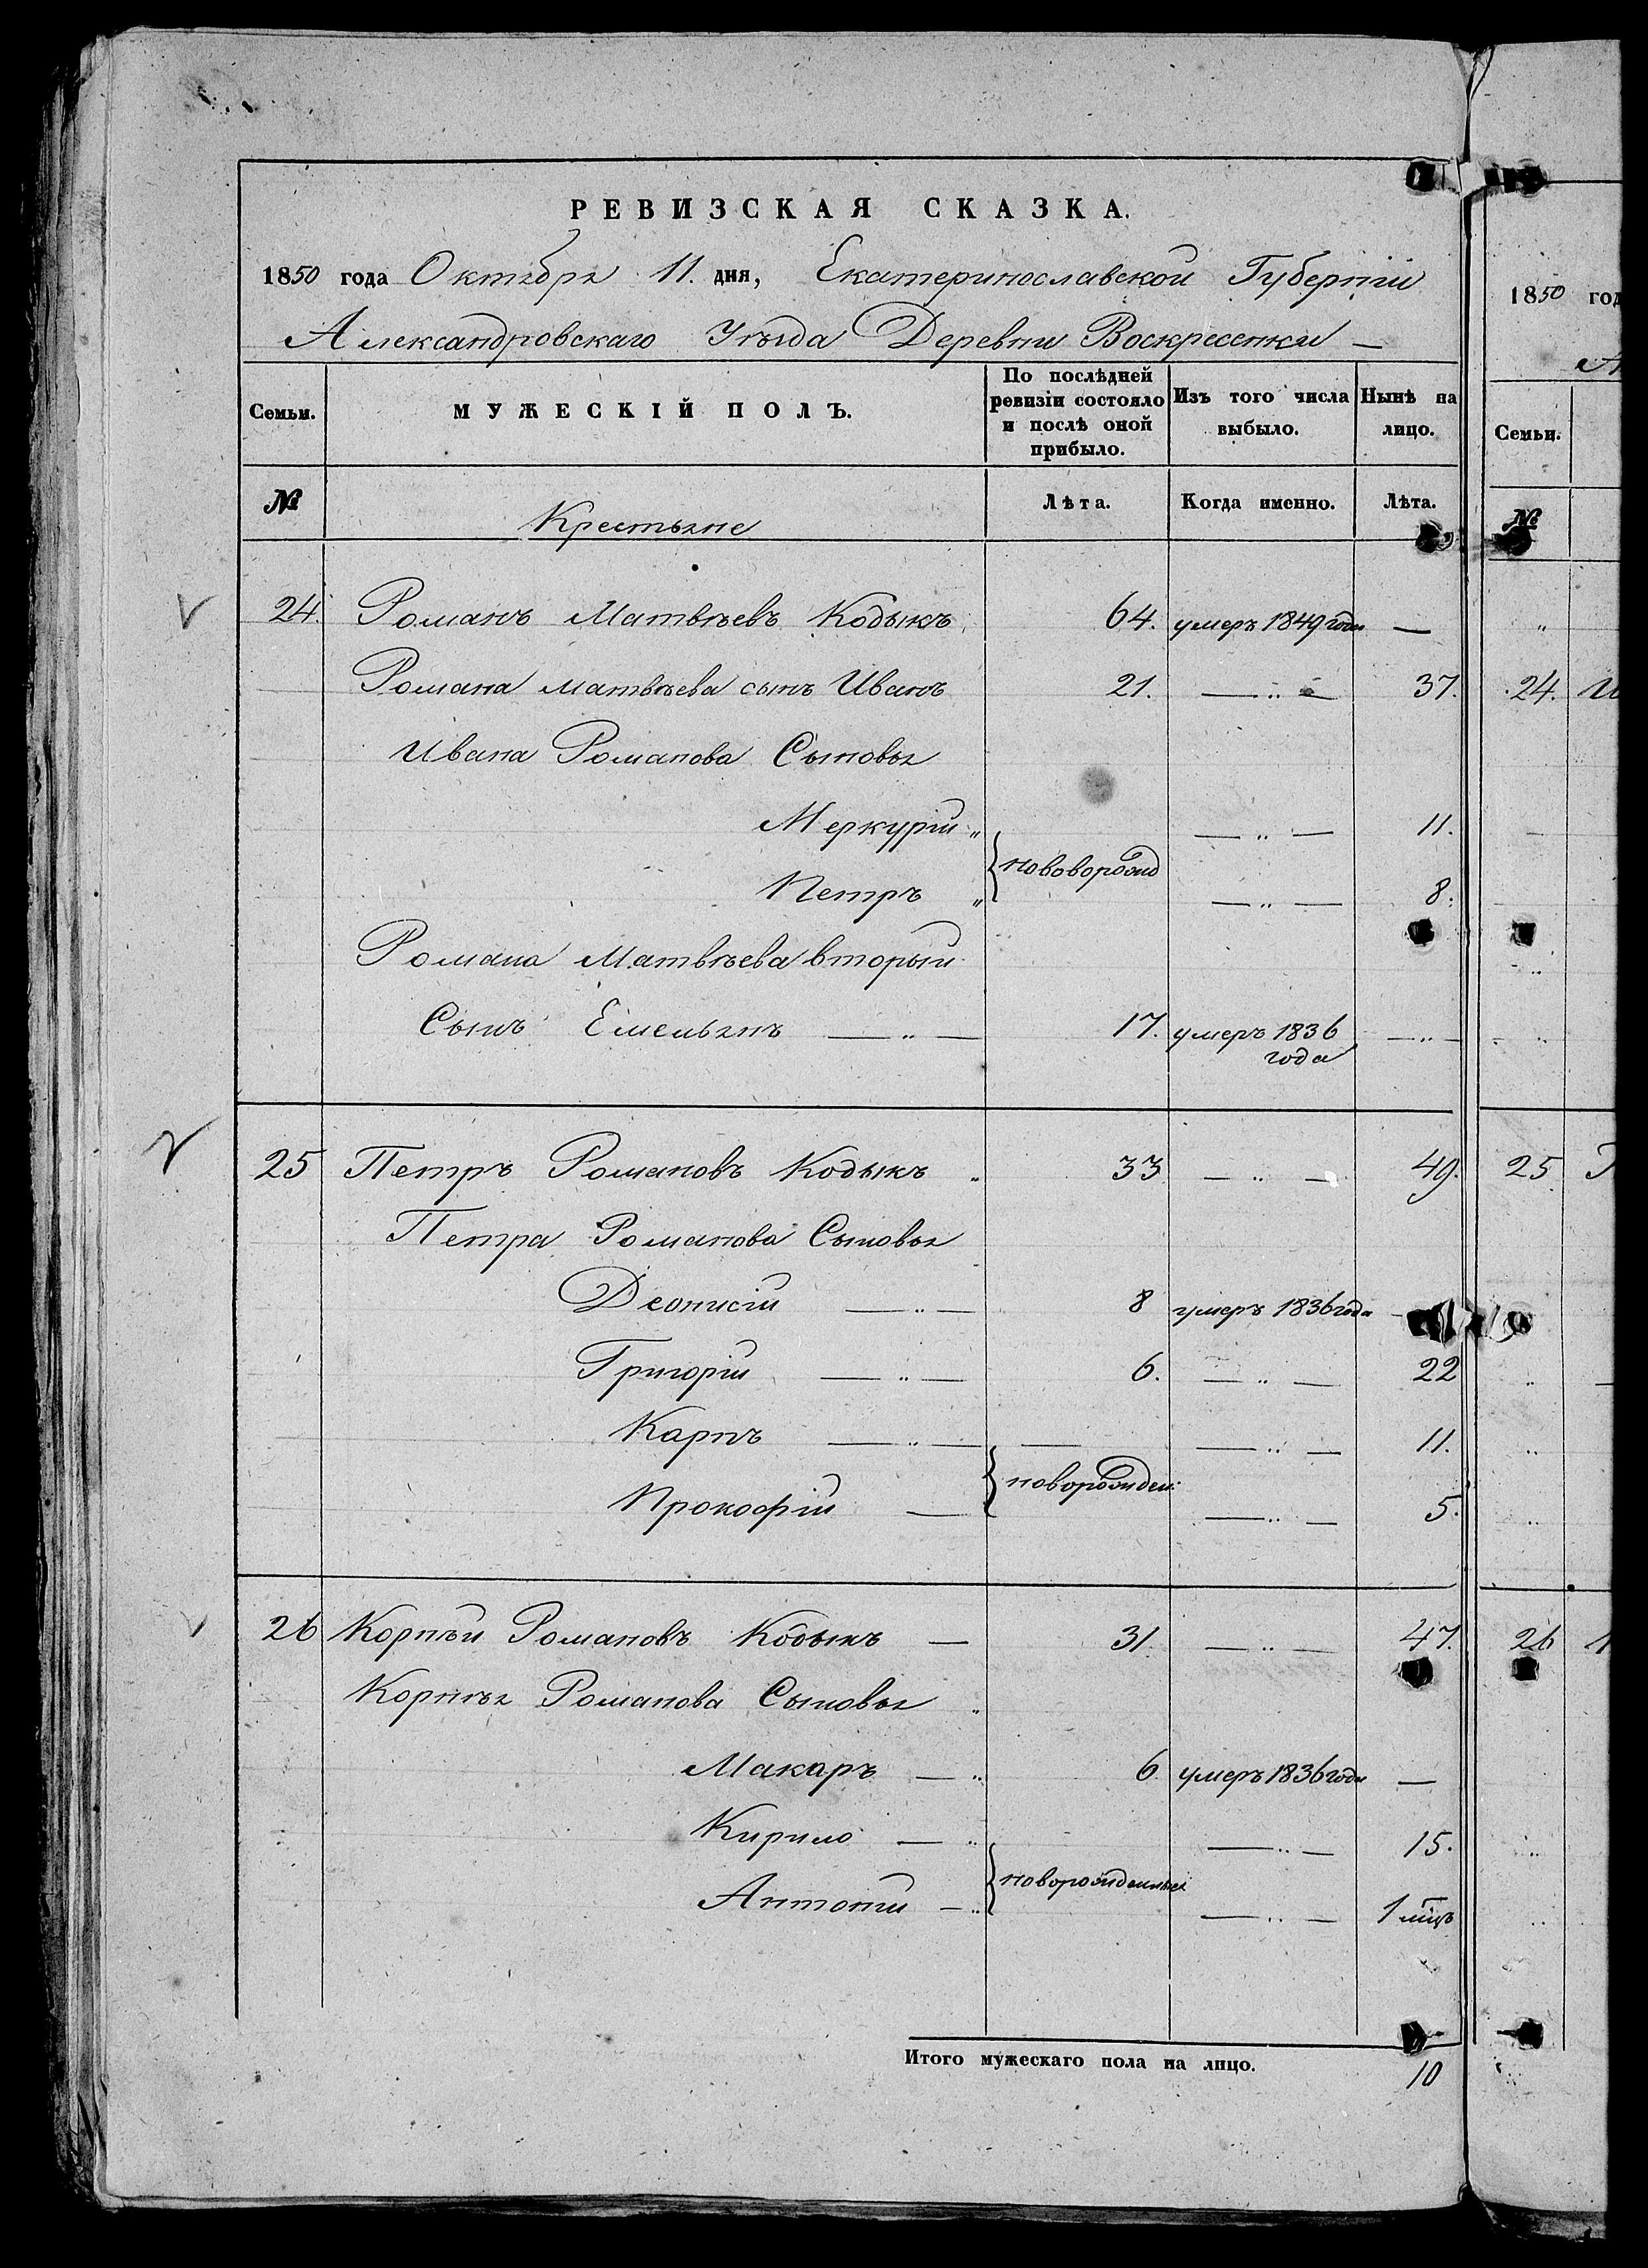 РЕВИЗСКАЯ СКАЗКА.
1850 года Октября 11. дня, Екатеринославской Губерніи
Александровскаго Уѣзда Деревни Воскресенки —
Семьи. МУЖЕСКІЙ ПОЛЪ. По послѣдней ревизіи состояло и послѣ оной прибыло. Изъ того числа выбыло. Нынѣ на лицо.
№ Крестьяне Лѣта. Когда именно. Лѣта.
24. Романъ Матвѣевъ Кодыкъ 64. умеръ 1849 года —
Романа Матвѣева сынъ Иванъ 21. — „ — 37.
Ивана Романова Сыновья
Меркурій „ — „ — 11.
нововорожд
Петръ „ — „ — 8.
Романа Матвѣева вторый
Сынъ Емельянъ — „ — 17. умеръ 1836 года — „ —
25 Петръ Романовъ Кодыкъ „ 33 — „ — 49.
Петра Романова Сыновья
Деонисій — „ — 8 умеръ 1836 года
Григорій — „ — 6. — „ — 22
Карпъ — „ — — — „ — 11.
новорожден:
Прокофій — — „ — 5.
26 Корнѣй Романовъ Кодыкъ — 31. — „ — 47.
Корнѣя Романова Сыновья „
Макаръ — „ 6. умеръ 1836 года —
Кирило — „ — „ — 15.
новорожденные
Антоній — „ — „ — 1 мцъ
Итого мужескаго пола на лицо. 10
1850 год
Семьи.
№
24.
25
26